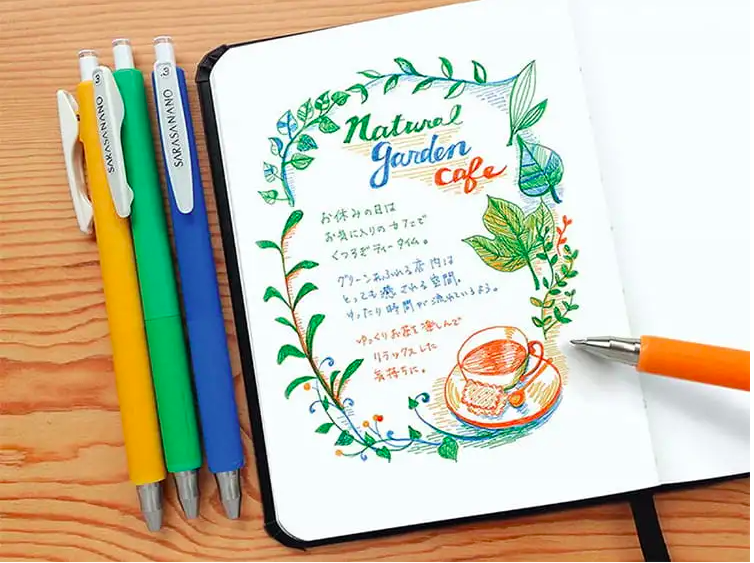 0.3
SARASA NANO
0.3
SARASA NANO
Natural
garden
cafe
お休みの日は
お気に入りのカフェで
くつろぎティータイム。
グリーンあふれる店内は
とっても癒される空間。
ゆったり時間が流れているよう。
ゆっくりお茶を楽しんで
リラックスした
気持ちに。